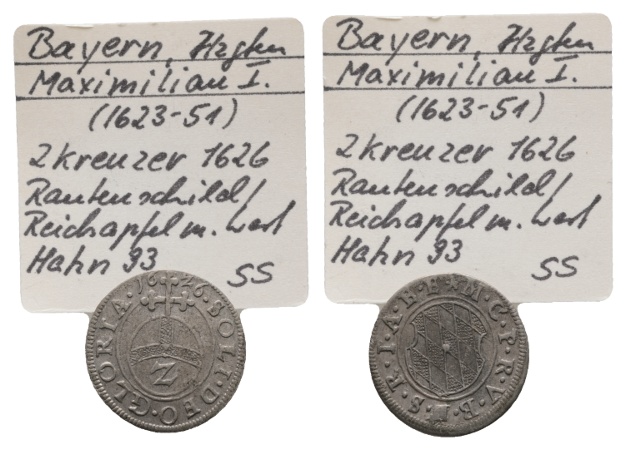 Bayern, Hzgtm
Maximilian I.
(1623-51)
2 Kreuzer 1626
Rautenschild/
Reichapfel m. Wert
Hahn 93
SS
16 26 · SOLI · DEO · GLORIA ·
2
Bayern, Hzgtm
Maximilian I.
(1623-51)
2 Kreuzer 1626
Rautenschild/
Reichapfel m. Wert
Hahn 93
SS
M · C · P · R · V · B · · S · R · I · A · E · E